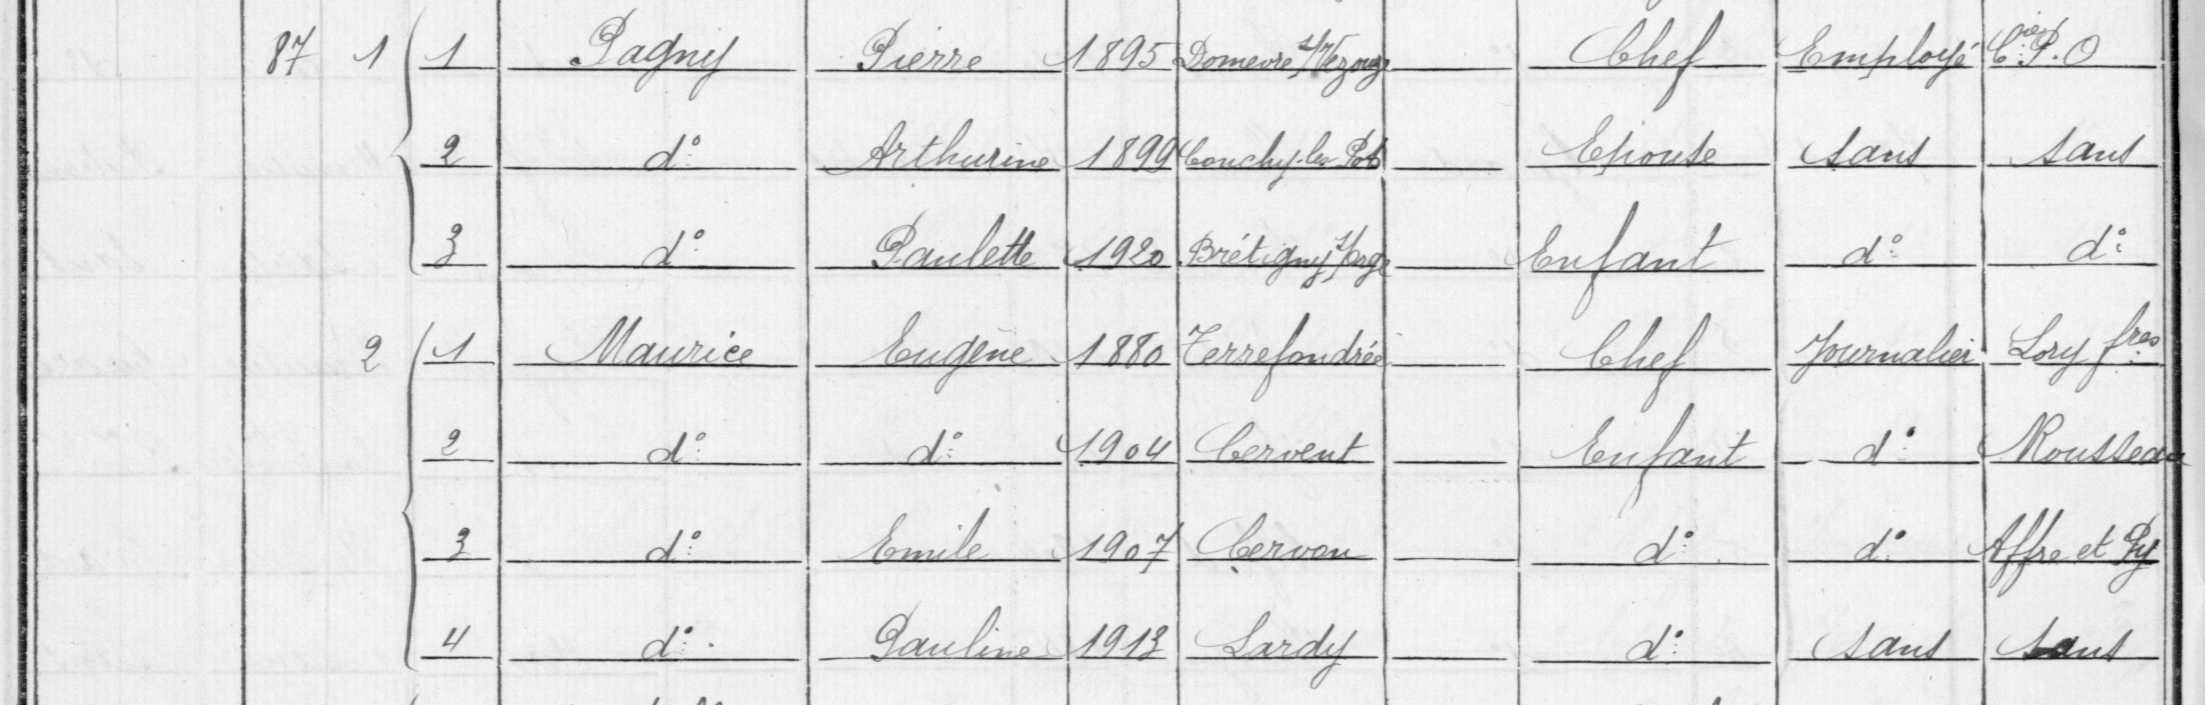 87 1 1 Pagny Pierre 1895 Domevre s/Vezouze Chef Employé Cie P.O
2 d° Arthurine 1899 Conchy-les Pots Epouse sans sans
3 d° Paulette 1920 Brétigny s/Orge Enfant d° d°
2 1 Maurice Eugène 1880 Terrefondrée Chef Journalier Lory fres
2 d° d° 1904 Cervent Enfant d° Rousseau
3 d° Emile 1907 Cervon d° d° Affre et Py
4 d° Pauline 1913 Lardy d° sans sans